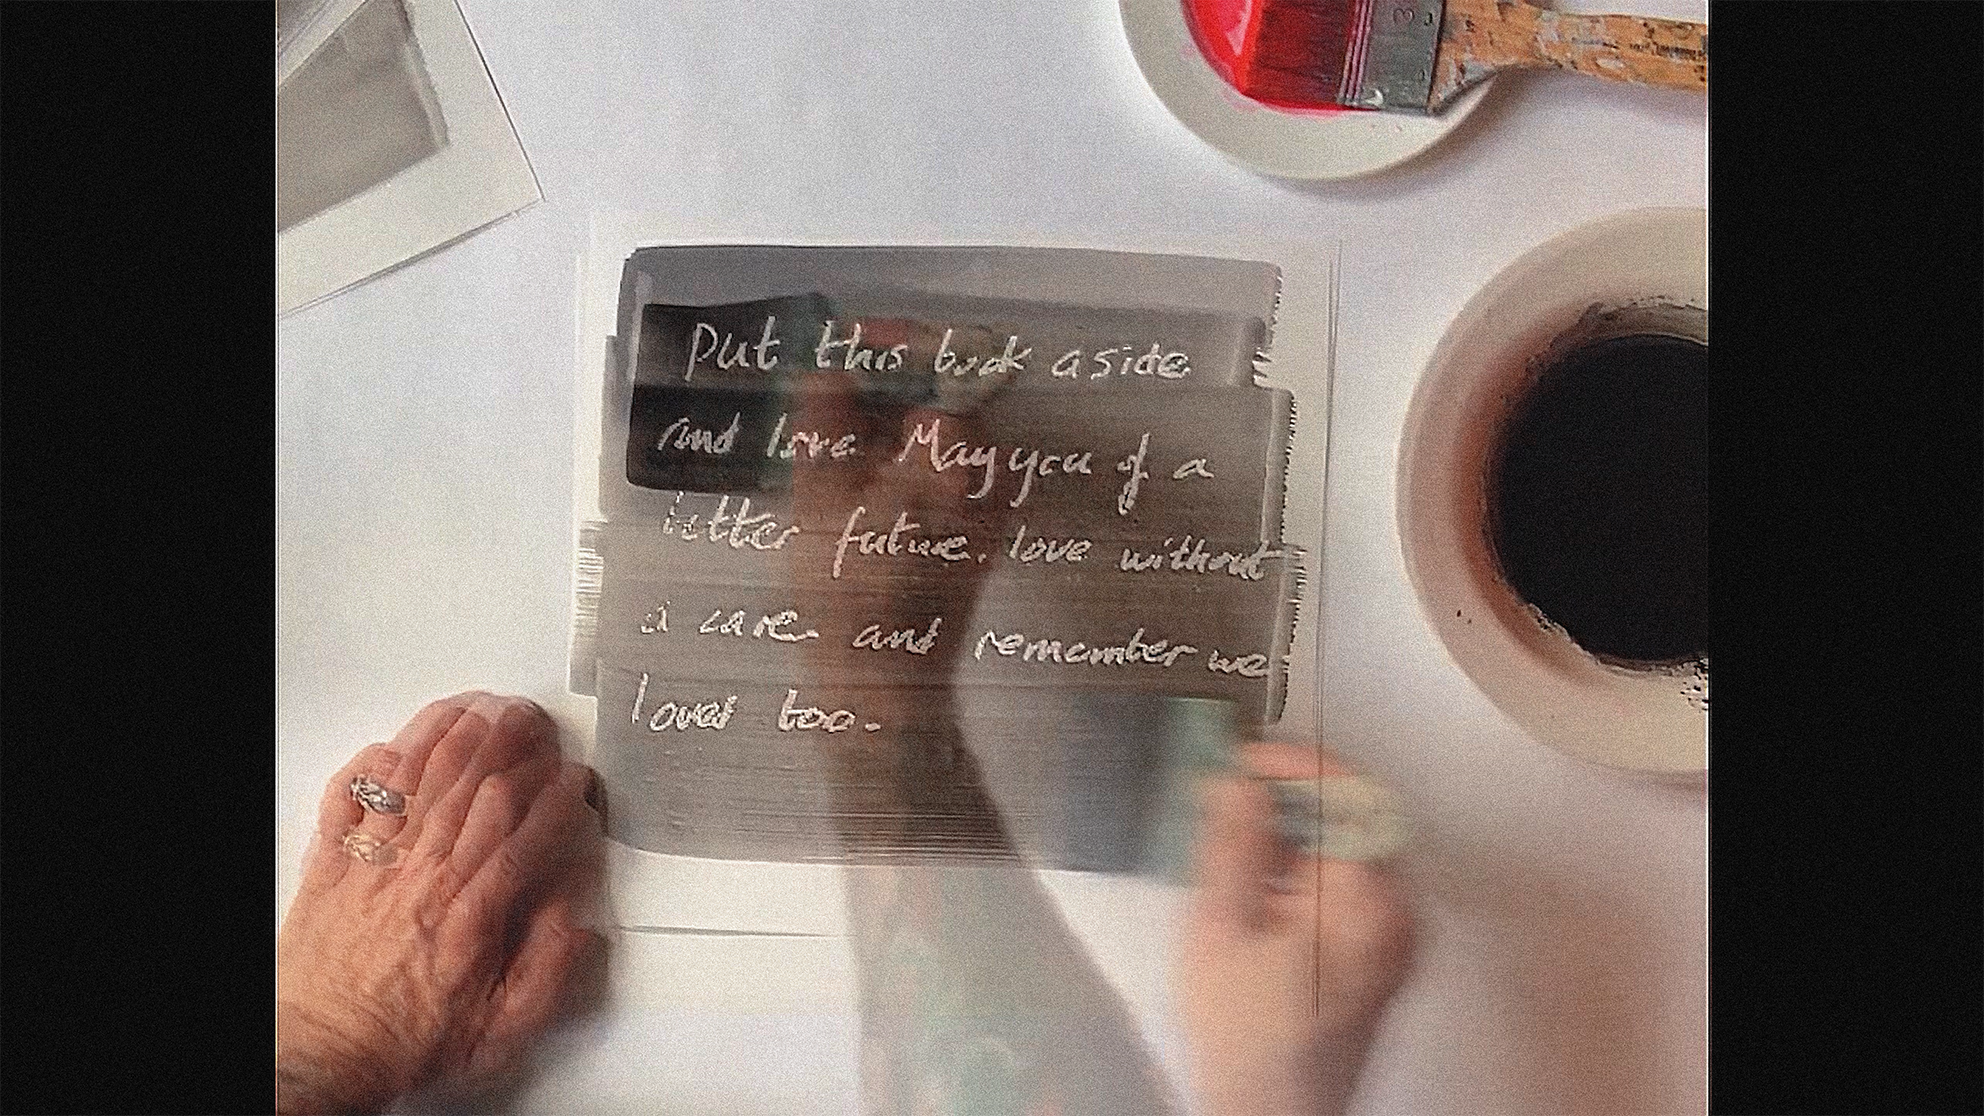 Put this book aside
and love May you of a
better future. love without
a care and remember we
loved too.